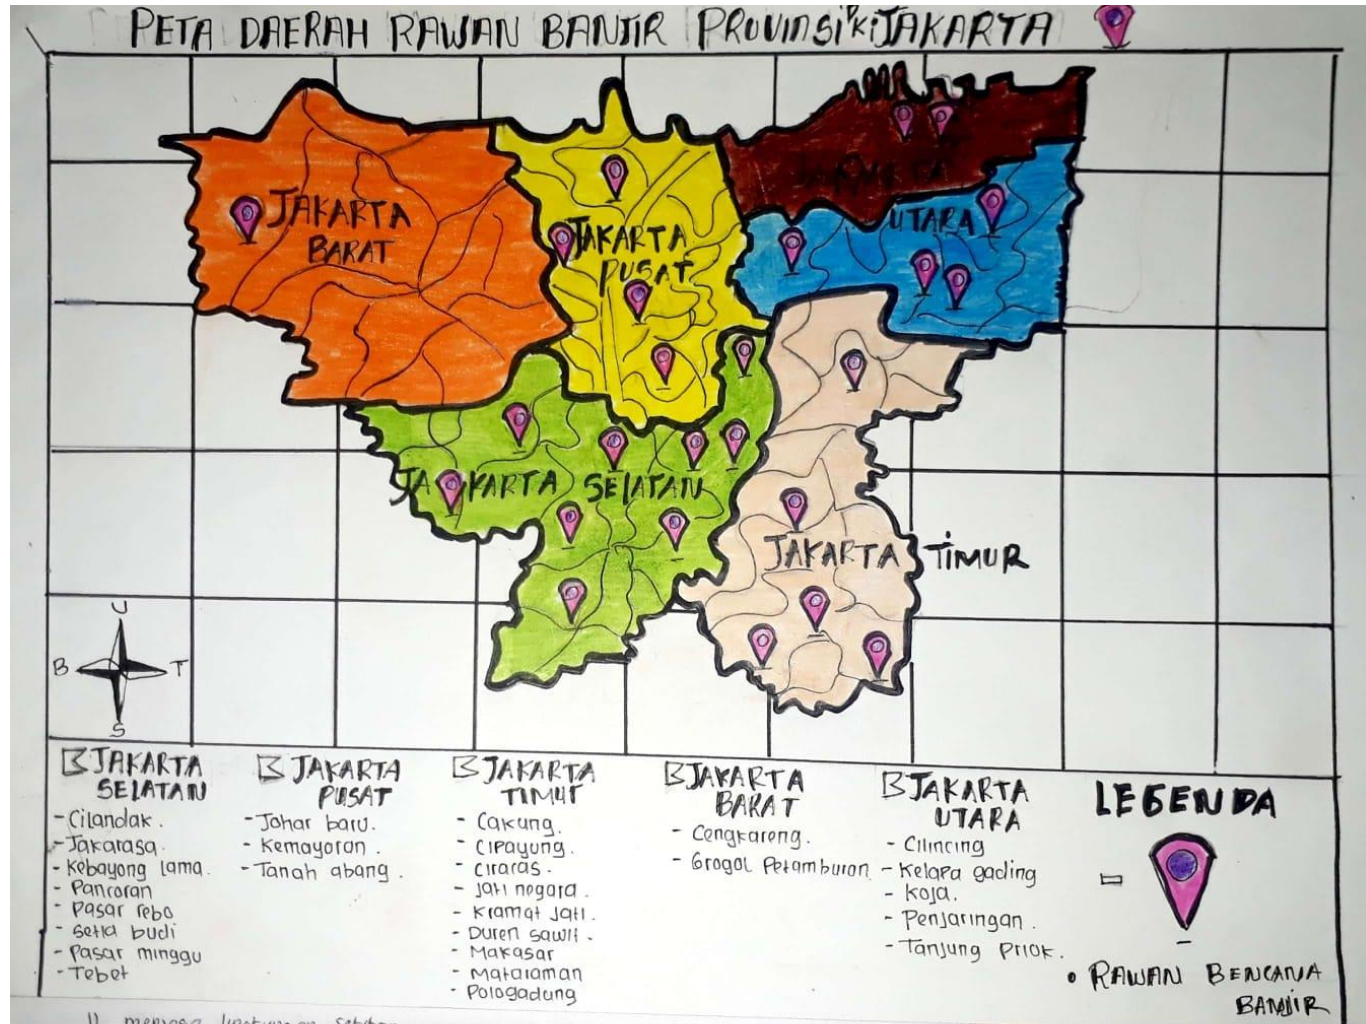 PETA DAERAH RAWAN BANJIR PROVINSI DKI JAKARTA
JAKARTA
BARAT
JAKARTA
PUSAT
JAKARTA
UTARA
JAKARTA SELATAN
JAKARTA TIMUR
U
B T
S
JAKARTA
SELATAN
- Cilandak.
- Jakarasa.
- Kebayong lama.
- Pancoran
- Pasar rebo
- Setia budi
- Pasar minggu
- Tebet
JAKARTA
PUSAT
- Johar baru.
- Kemayoran.
- Tanah abang.
JAKARTA
TIMUR
- Cakung.
- Cipayung.
- Ciracas.
- Jati negara.
- Kramat Jati.
- Duren sawit.
- Makasar
- Mataraman
- Pologadung
JAKARTA
BARAT
- Cengkareng.
- Grogol Petamburan
JAKARTA
UTARA
- Cilincing
- Kelapa gading
- Koja.
- Penjaringan.
- Tanjung Priok.
LEGENDA
• RAWAN BENCANA
BANJIR